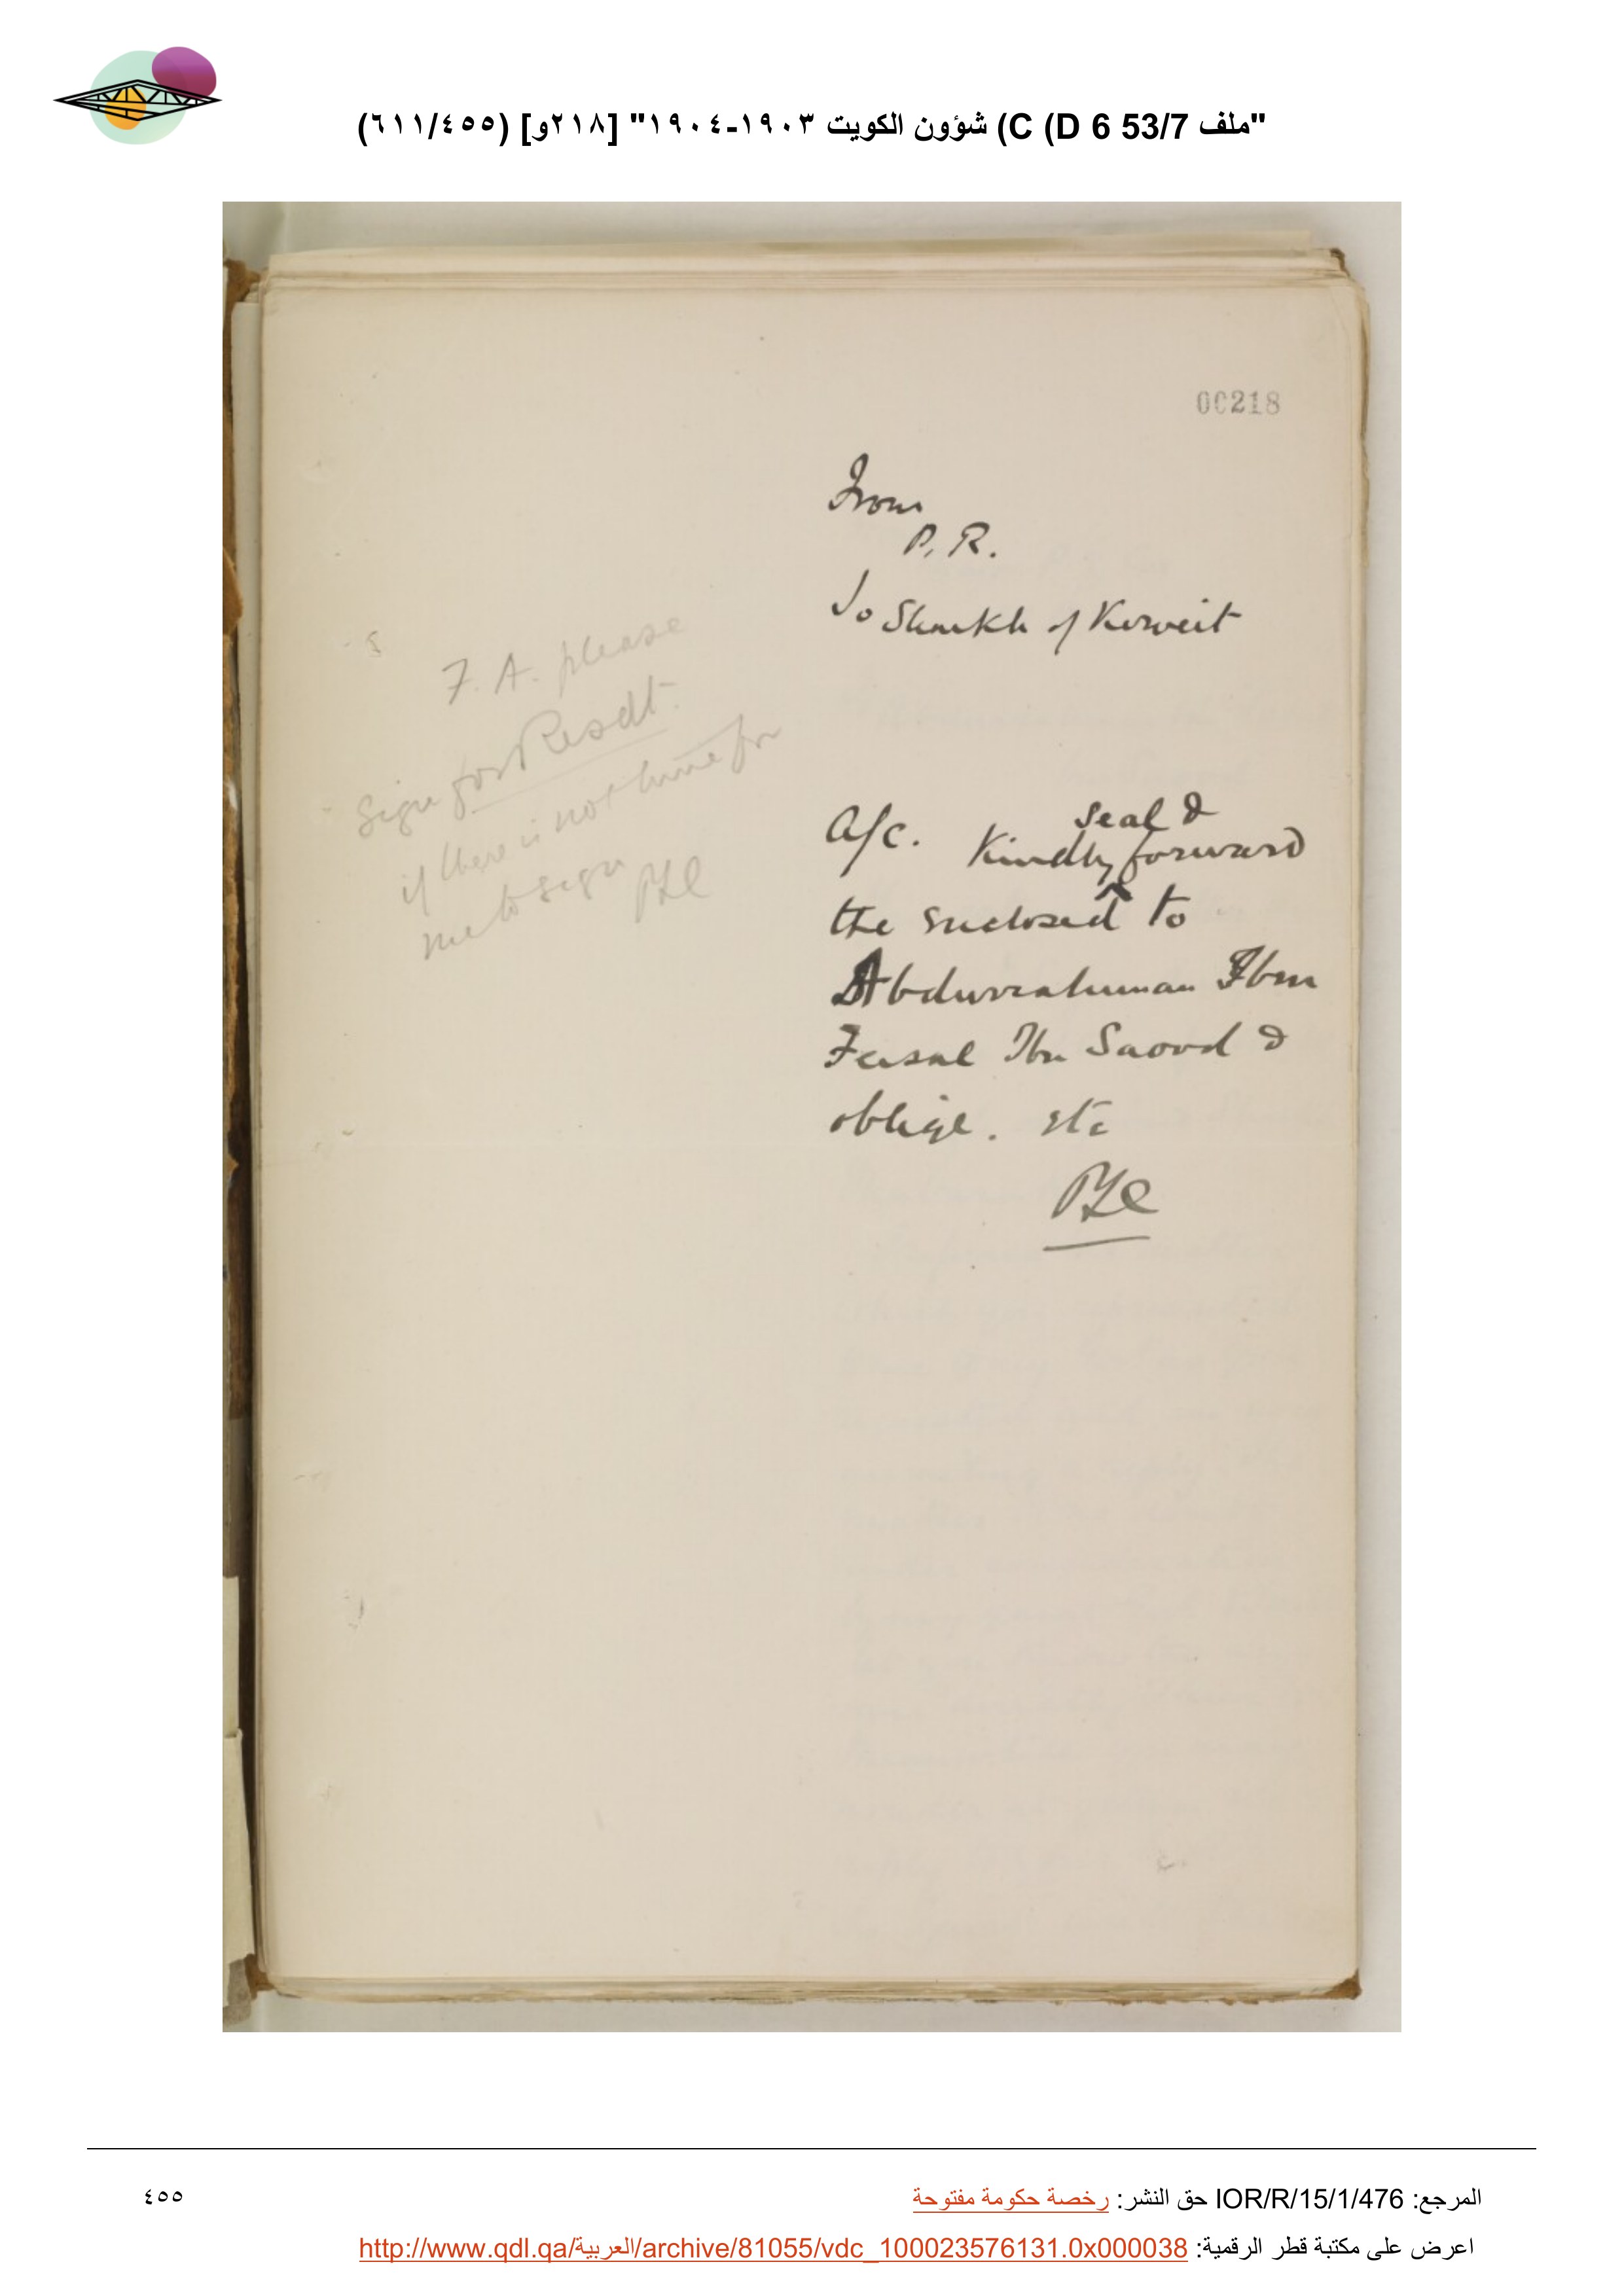 "ملف 53/7 D 6) C) شؤون الكويت ١٩٠٣-١٩٠٤" [٢١٨و] (٦١١/٤٥٥)
00218
From
P. R.
To Shaikh of Kuweit
F. A. please
sign for Resdt.
if there is not time for
me to sign
PZC
A/c. Kindly seal &
forward
the enclosed to
Abdurrahman Ibn
Feisal Ibn Saood &
oblige. etc
PZC
المرجع: IOR/R/15/1/476 حق النشر: رخصة حكومة مفتوحة
٤٥٥
اعرض على مكتبة قطر الرقمية: http://www.qdl.qa/العربية/archive/81055/vdc_100023576131.0x000038